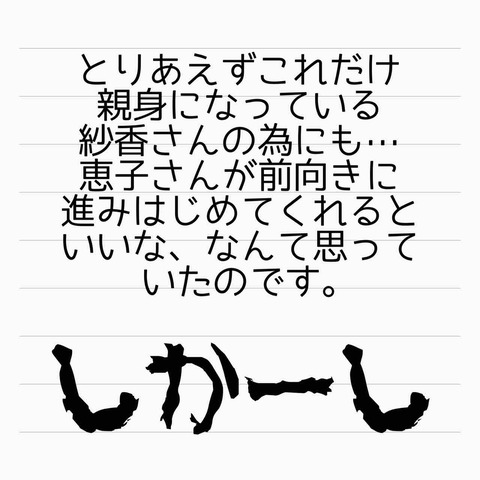 とりあえずこれだけ
親身になっている
紗香さんの為にも…
恵子さんが前向きに
進みはじめてくれると
いいな、なんて思って
いたのです。
しかーし